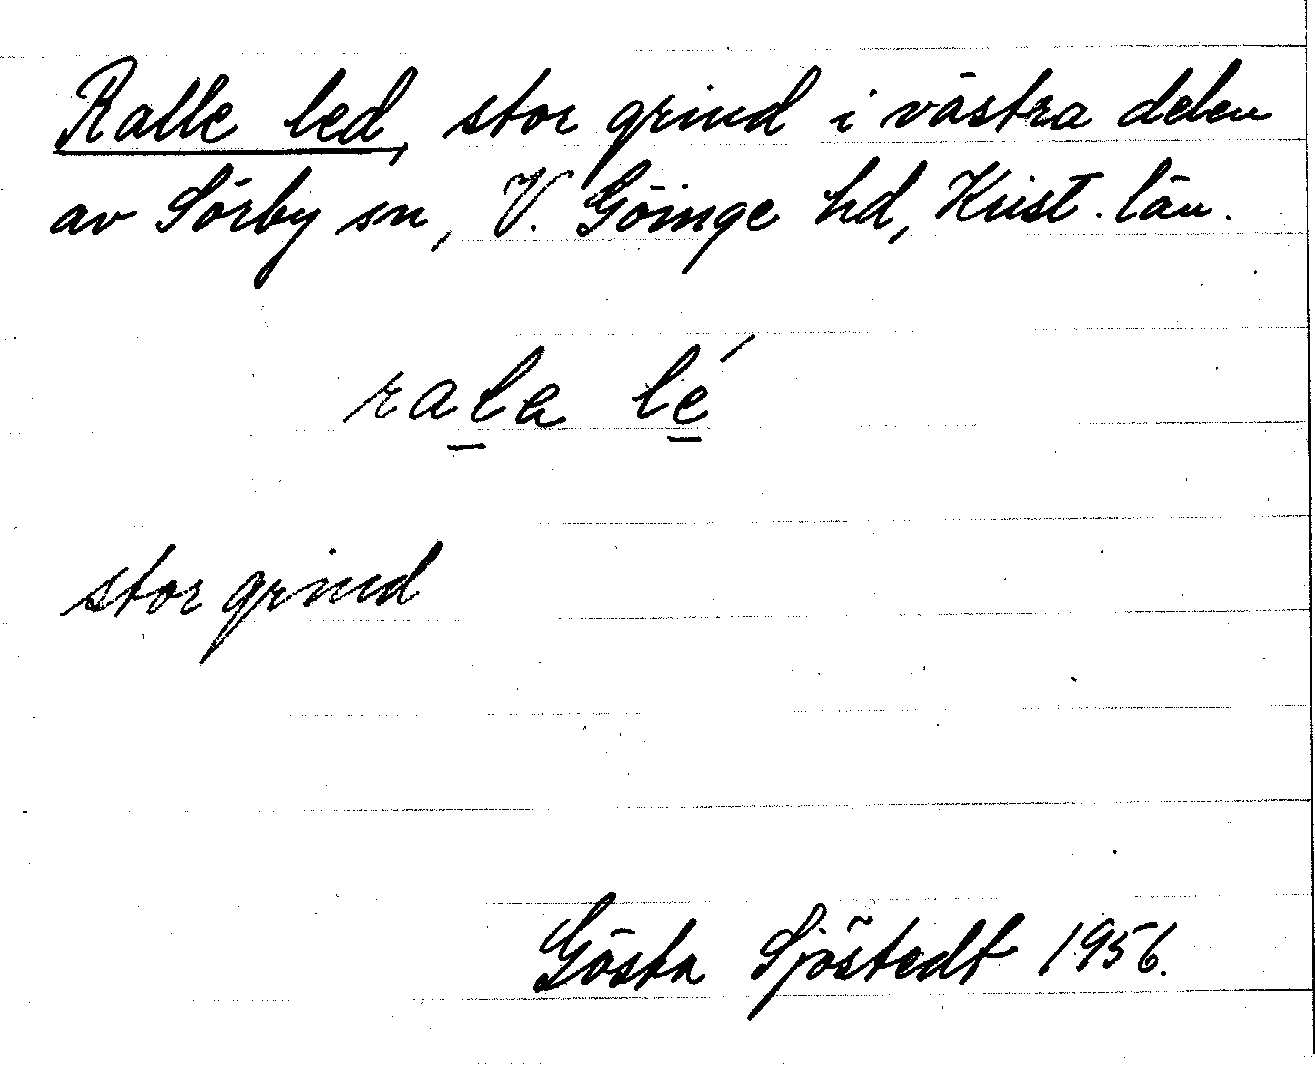 Ralle led, stor grind i västra delen
av Sörby sn, V. Göinge hd, Krist. län.
rala lé
stor grind
Gösta Sjöstedt 1956.